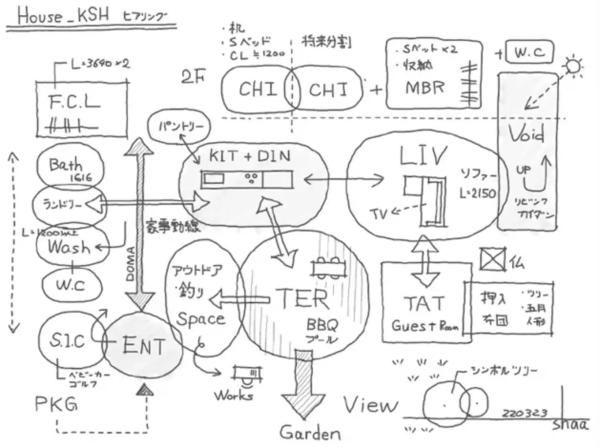 House_KSH ヒアリング
・机
・Sベッド
・CL≒1200
将来分割
L=3640×2
F.C.L
2F
CHI
CHI
+
・Sベット×2
・収納
MBR
+ W.C
Void
UP
リビング
パントリー
KIT+DIN
LIV
ソファー
L=2150
TV
Bath
1616
ランドリー
Wash
W.C
家事動線
DOMA
アウトドア
釣り
Space
TER
BBQ
プール
TAT
Guest Room
仏
押入
布団
・ツリー
・五月
人形
S.I.C
ベビーカー
ゴルフ
ENT
PKG
Works
Garden
View
シンボルツリー
220323
shaa